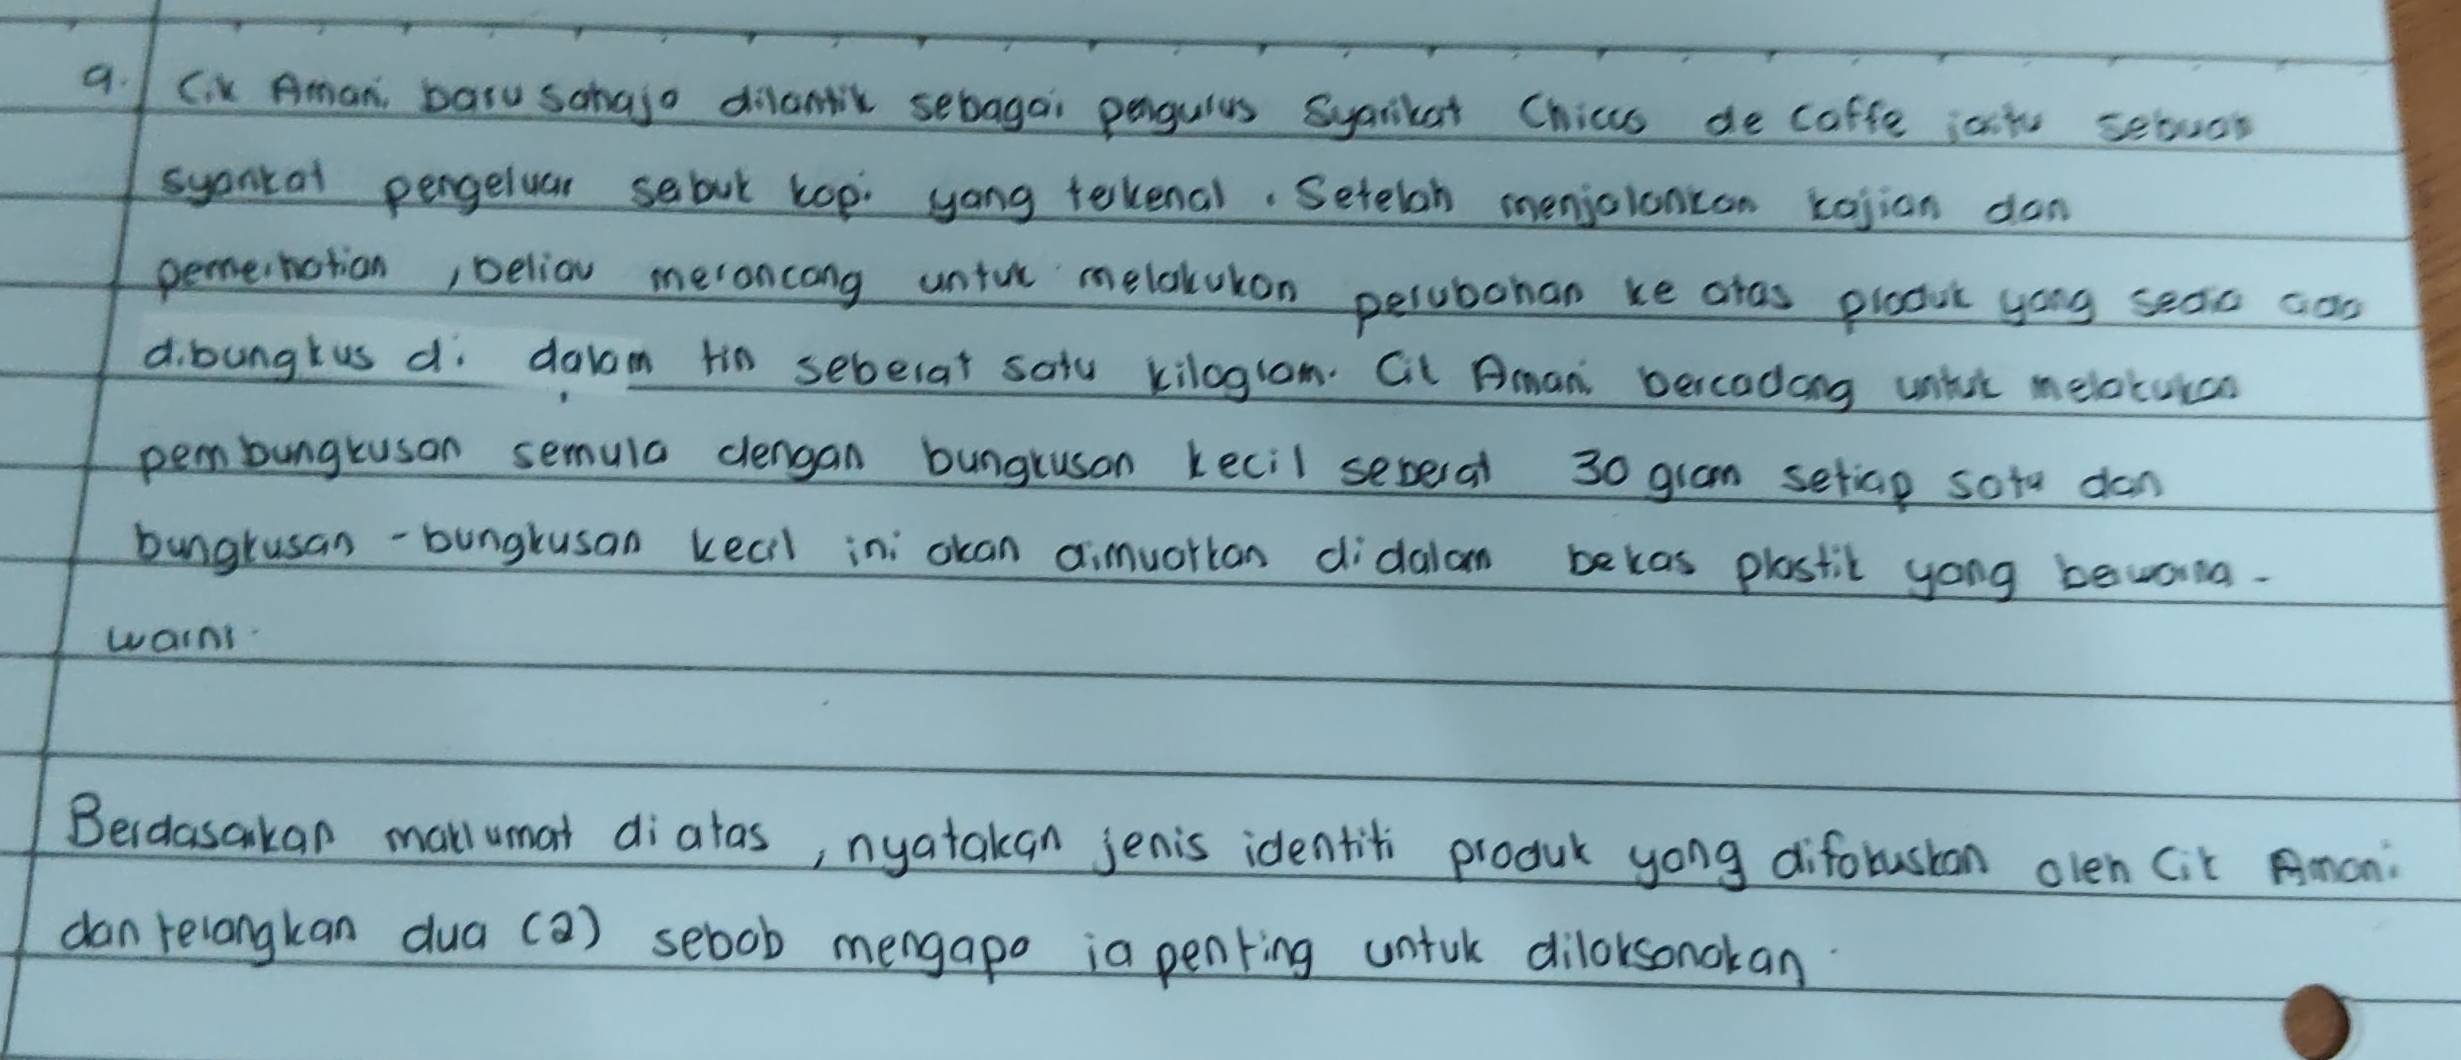 9. Cik Amani baru sahaja dilantik sebagai pengurus Syarikat Chiccs de Caffe iaitu sebuah
syarikat pengeluar serbuk kopi yang terkenal. Setelah menjalankan kajian dan
pemerhatian, beliau merancang untuk melakukan perubahan ke atas produk yang sedia ada
dibungkus di dalam tin seberat satu kilogram. Cik Amani bercadang untuk melakukan
pembungkusan semula dengan bungkusan kecil seberat 30 gram setiap satu dan
bungkusan-bungkusan kecil ini akan dimuatkan didalam bekas plastik yang bewarna-
warni.
Berdasarkan maklumat di atas, nyatakan jenis identiti produk yang difokuskan oleh Cik Amani
dan terangkan dua (2) sebab mengapa ia penting untuk dilaksanakan.